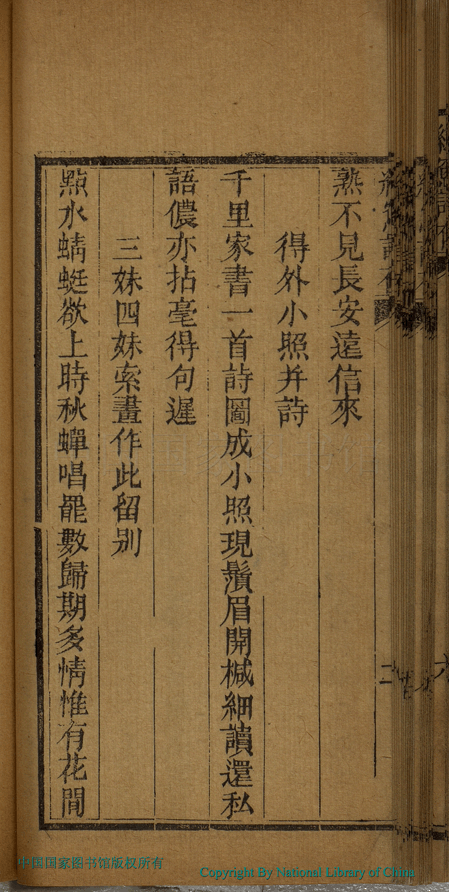 熟不見長安遠信來
得外小照幷詩
千里家書一首詩圖成小照現鬚眉開椷細讀還私
語儂亦拈毫得句遲
三妹四妹索畫作此留别
點水蜻蜓欲上時秋蟬唱罷數歸期多情惟有花間
中国国家图书馆版权所有
Copyright By National Library of China